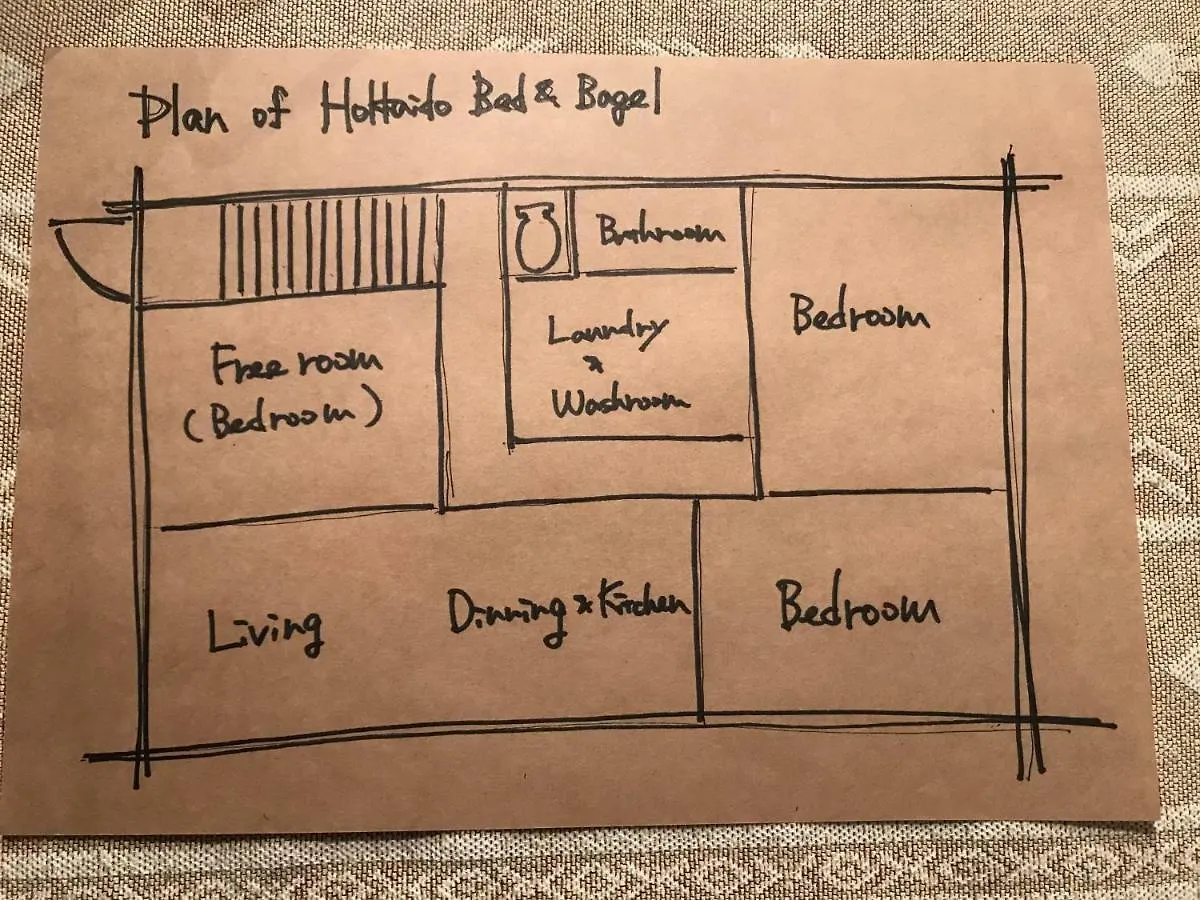 Plan of Hokkaido Bed & Bagel
Bathroom
Laundry
&
Washroom
Bedroom
Free room
(Bedroom)
Living
Dinning & Kitchen
Bedroom